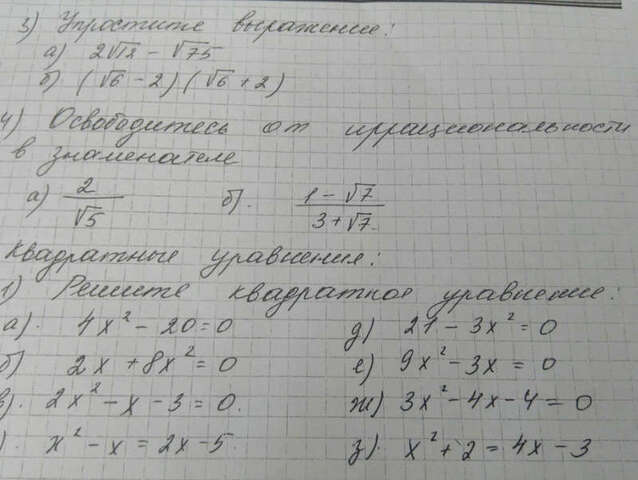 3) Упростите выражение:
а) 2√12 − √75
б) (√6 − 2)(√6 + 2)
4) Освободитесь от иррациональности
в знаменателе
а) 2/√5 б). (1 − √7)/(3 + √7).
Квадратные уравнения:
1) Решите квадратное уравнение:
а). 4x² − 20 = 0 д) 21 − 3x² = 0
б) 2x + 8x² = 0 е) 9x² − 3x = 0
в). 2x² − x − 3 = 0. ж) 3x² − 4x − 4 = 0
). x² − x = 2x − 5. з). x² + 2 = 4x − 3